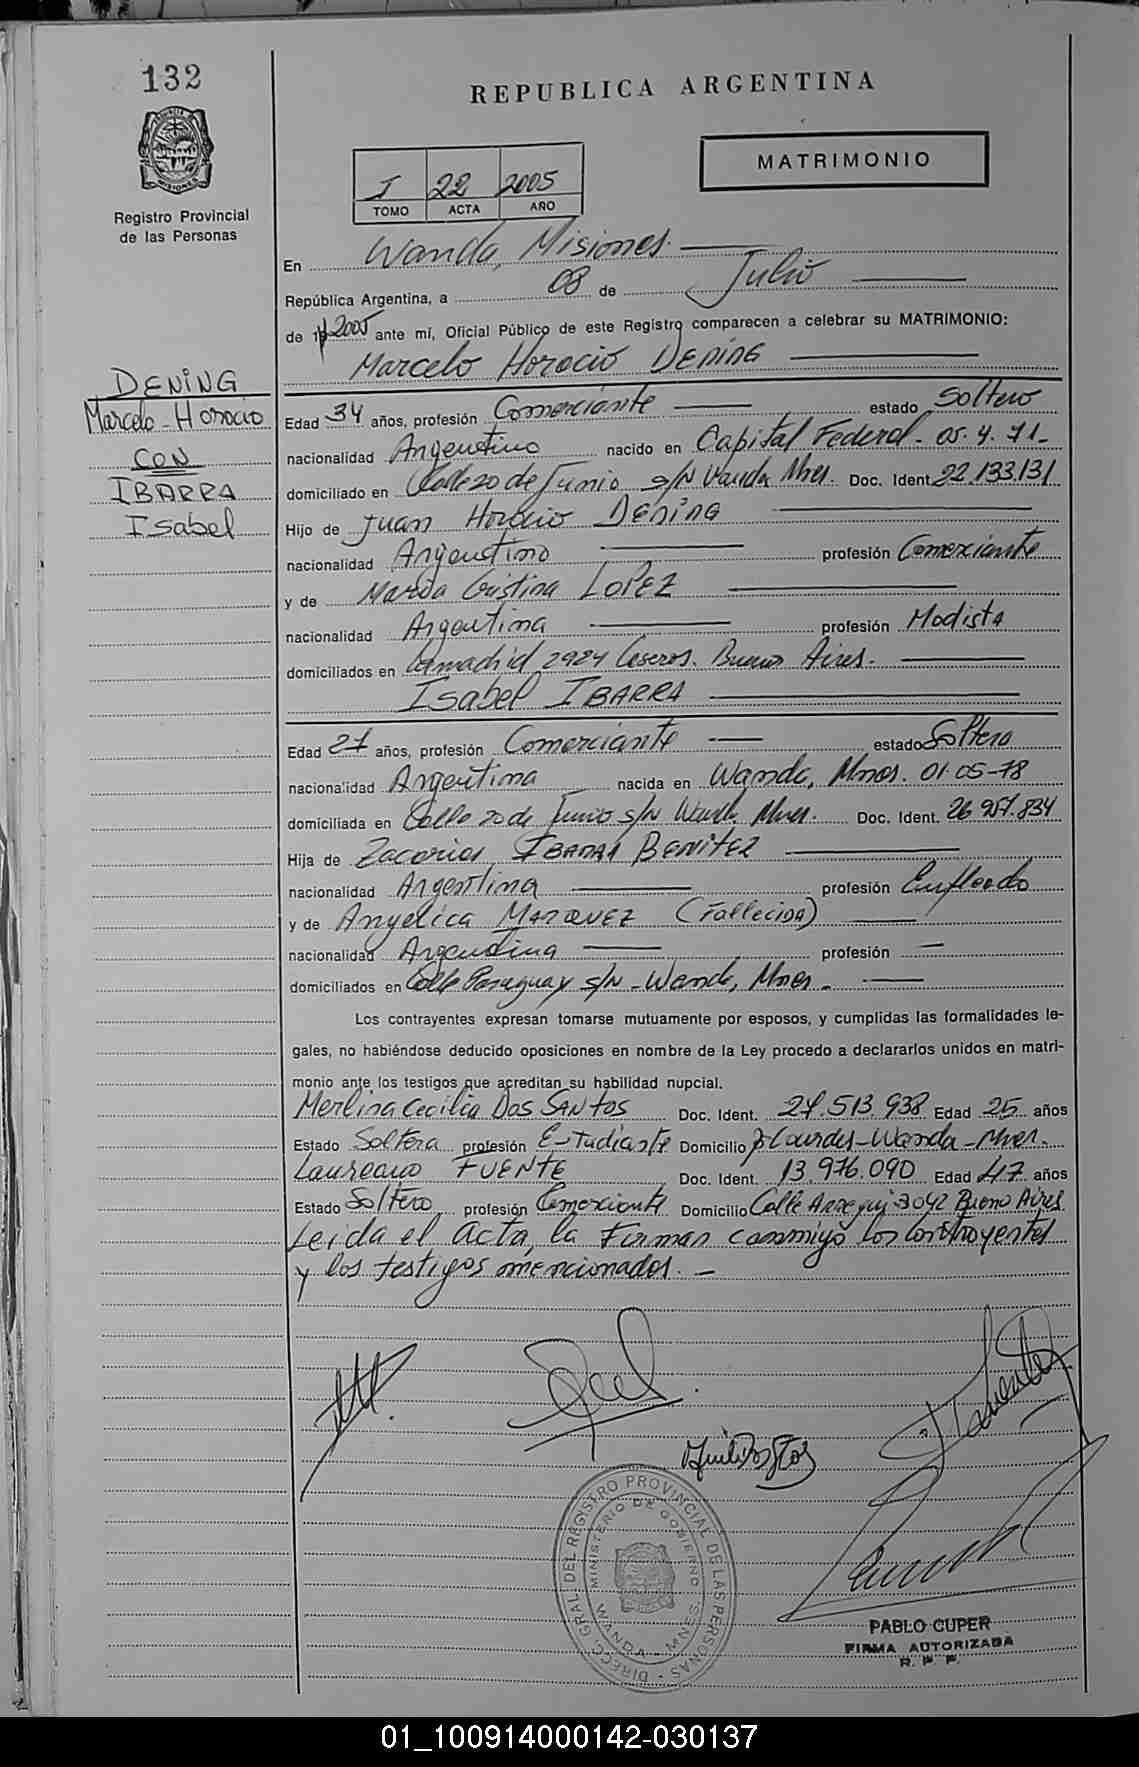 132
REPUBLICA ARGENTINA
MATRIMONIO
I 22 2005
TOMO ACTA AÑO
Registro Provincial
de las Personas
En Wanda, Misiones.
República Argentina, a 08 de Julio
de 2005 ante mí, Oficial Público de este Registro comparecen a celebrar su MATRIMONIO:
Marcelo Horacio DENING
DENING
Marcelo Horacio
CON
IBARRA
Isabel
Edad 34 años, profesión Comerciante estado Soltero
nacionalidad Argentino nacido en Capital Federal - 05.4.71-
domiciliado en Calle 20 de Junio s/N Wanda Mnes. Doc. Ident. 22.133.131
Hijo de Juan Horacio DENING
nacionalidad Argentino profesión Comerciante
y de María Cristina LOPEZ
nacionalidad Argentina profesión Modista
domiciliados en 2924 Caseros. Buenos Aires.
Isabel IBARRA
Edad 27 años, profesión Comerciante estado Soltera
nacionalidad Argentina nacida en Wanda, Mnes. 01-05-78
domiciliada en Calle 20 de Junio s/N Wanda Mnes. Doc. Ident. 26.957.834
Hija de Zacarias IBARRA BENITEZ
nacionalidad Argentina profesión Empleado
y de Angelica MARQUEZ (Fallecida)
nacionalidad Argentina profesión —
domiciliados en Calle Paraguay s/N - Wanda, Mnes.
Los contrayentes expresan tomarse mutuamente por esposos, y cumplidas las formalidades le-
gales, no habiéndose deducido oposiciones en nombre de la Ley procedo a declararlos unidos en matri-
monio ante los testigos que acreditan su habilidad nupcial.
Merlina Cecilia Dos SANTOS Doc. Ident. 27.513.938 Edad 25 años
Estado Soltera profesión Estudiante Domicilio Lourdes-Wanda-Mnes.
Laureano FUENTE Doc. Ident. 13.976.090 Edad 47 años
Estado Soltero profesión Comerciante Domicilio Calle Arregui 3042 Bueno Aires
Leida el Acta, la Firman conmigo los contrayentes
y los testigos mencionados.
DIRECC. GRAL. DEL REGISTRO PROVINCIAL DE LAS PERSONAS
MINISTERIO DE GOBIERNO
WANDA - MNES.
PABLO CUPER
FIRMA AUTORIZADA
R. P. P.
01_100914000142-030137